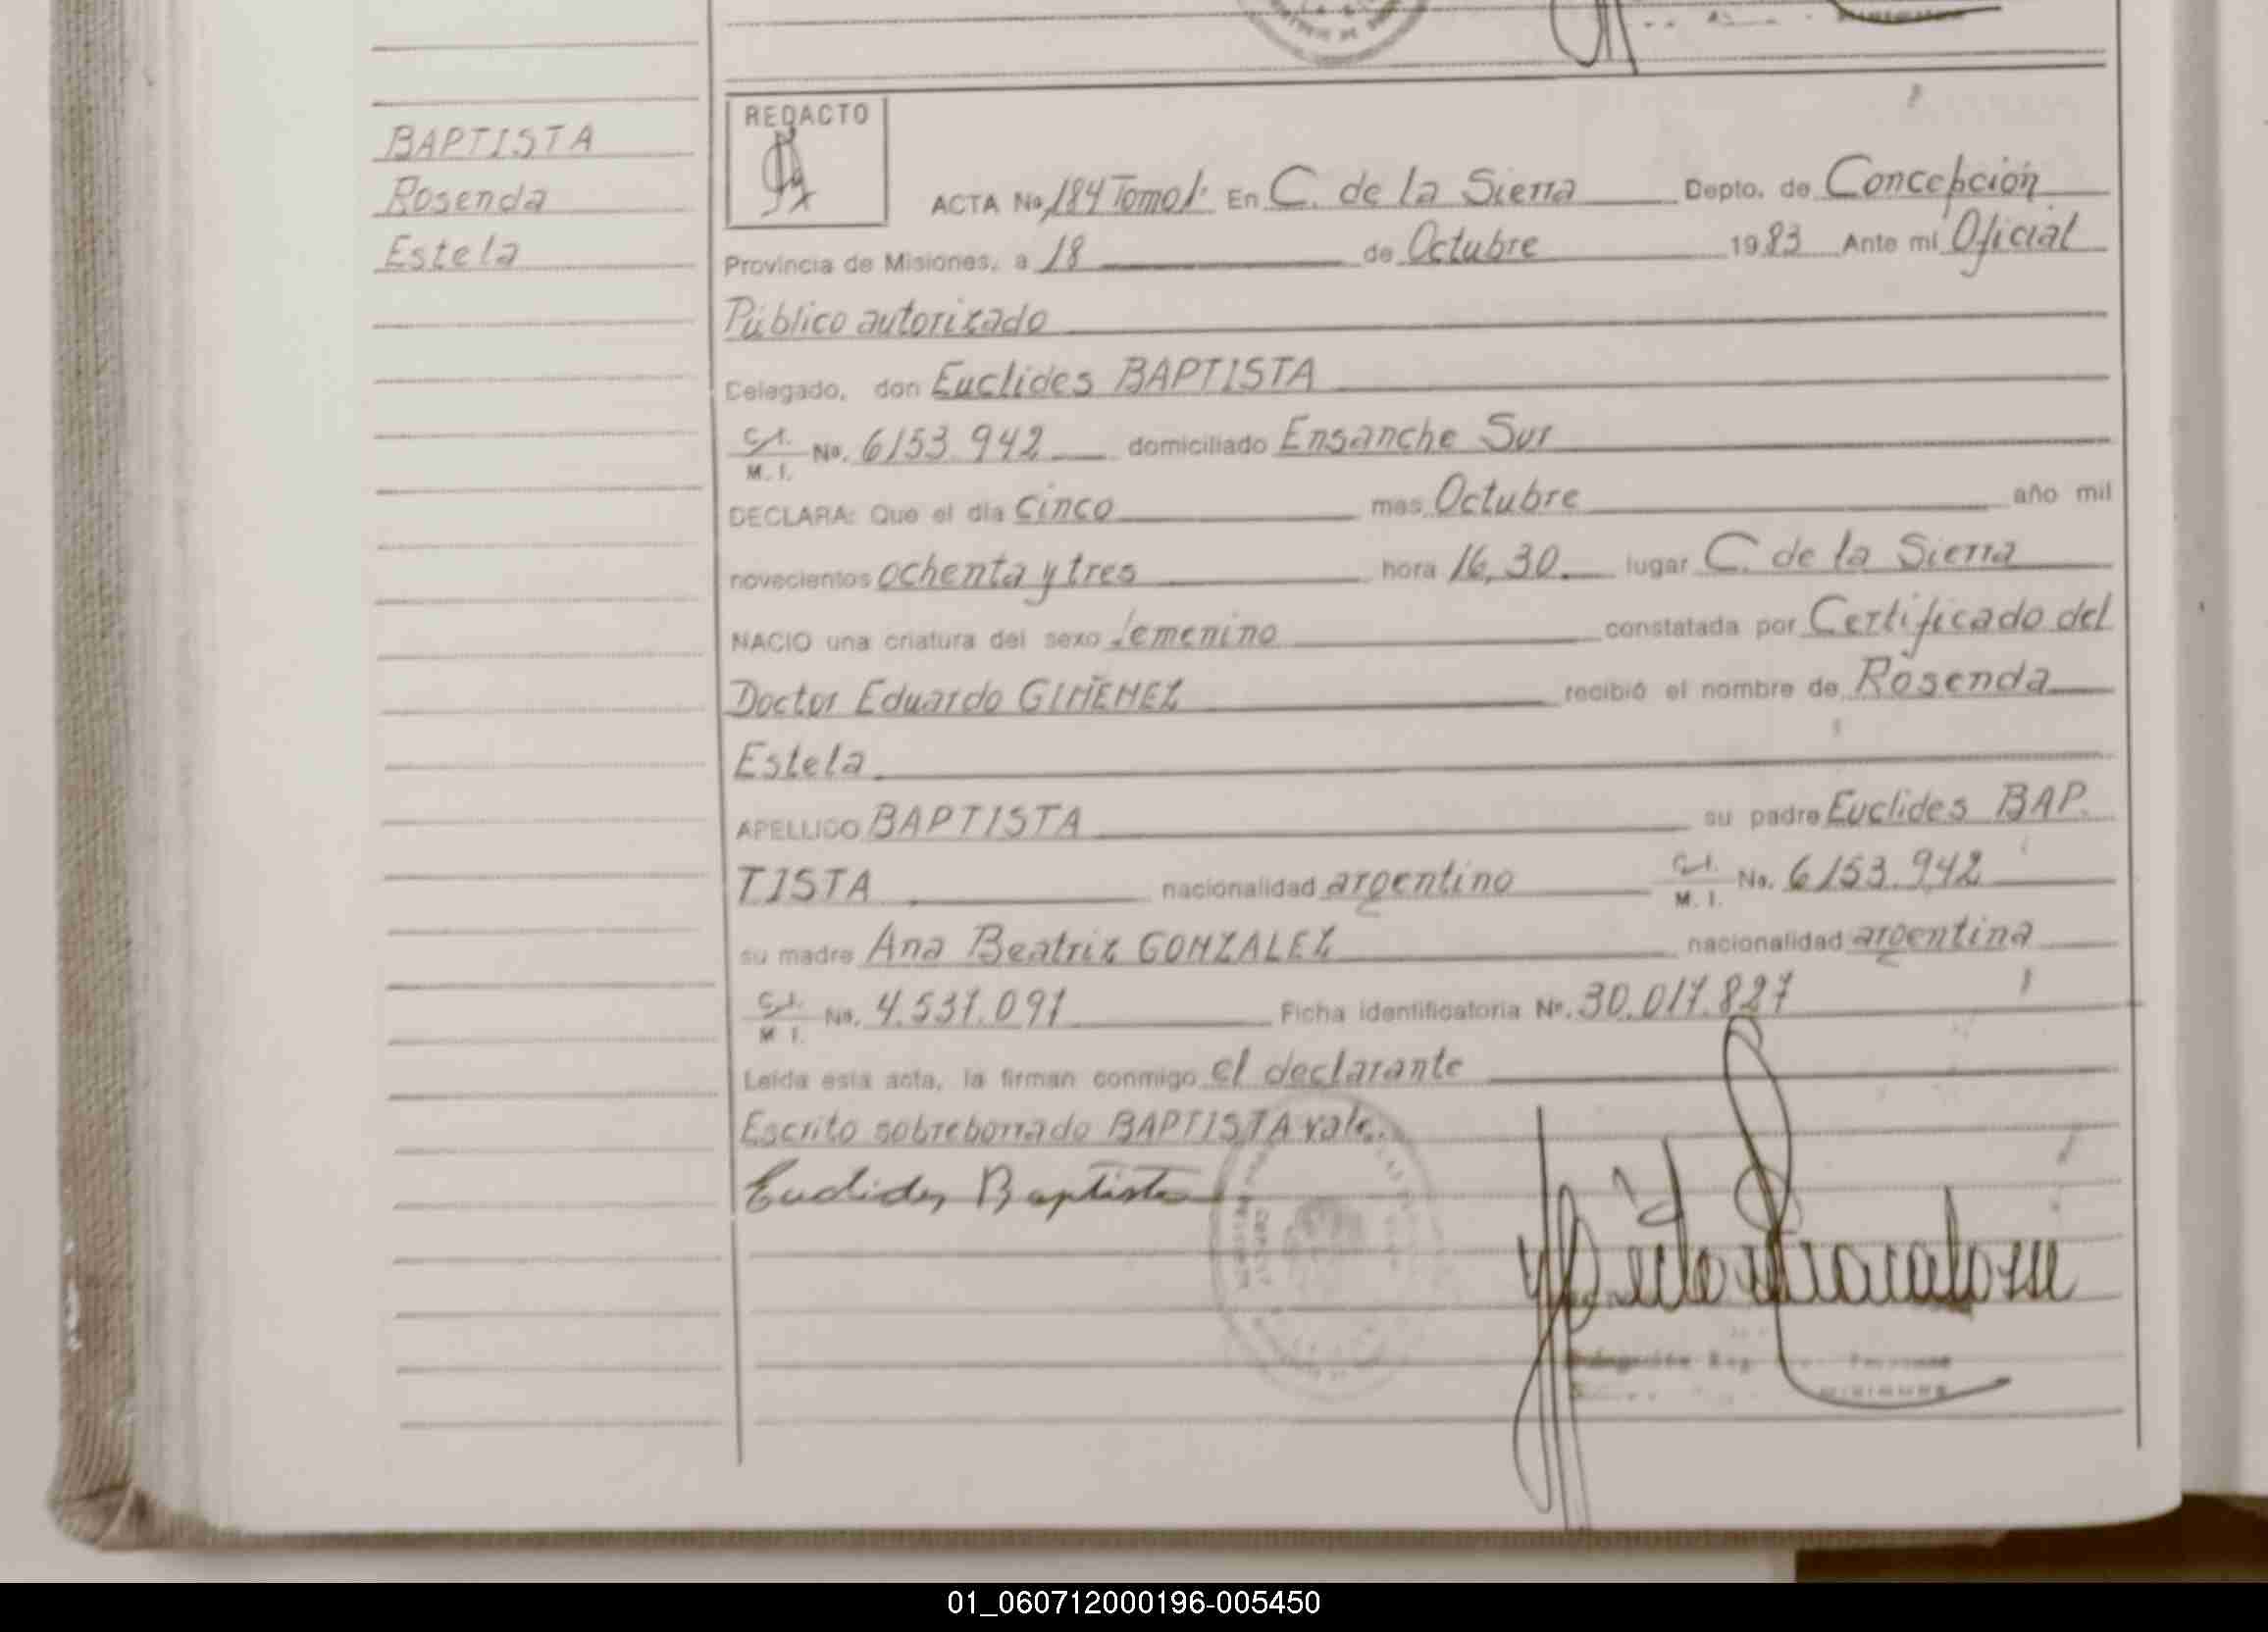 BAPTISTA
Rosenda
Estela
REDACTO
ACTA No 184 Tomo 1º En C. de la Sierra Depto. de Concepción
Provincia de Misiones, a 18 de Octubre 1983 Ante mi Oficial
Público autorizado
Delegado, don Euclides BAPTISTA
C.I. M.I. No. 6153.942 domiciliado Ensanche Sur
DECLARA: Que el día cinco mes Octubre año mil
novecientos ochenta y tres hora 16,30. lugar C. de la Sierra
NACIO una criatura del sexo femenino constatada por Certificado del
Doctor Eduardo GIMENEZ recibió el nombre de Rosenda
Estela
APELLIDO BAPTISTA su padre Euclides BAP.
TISTA nacionalidad argentino C.I. M.I. No. 6153.942
su madre Ana Beatriz GONZALEZ nacionalidad argentina
C.I. M.I. No. 4.537.097 Ficha identificatoria Nº. 30.017.827
Leída esta acta, la firman conmigo el declarante
Escrito sobreborrado BAPTISTA vale.
Euclides Baptista
01_060712000196-005450